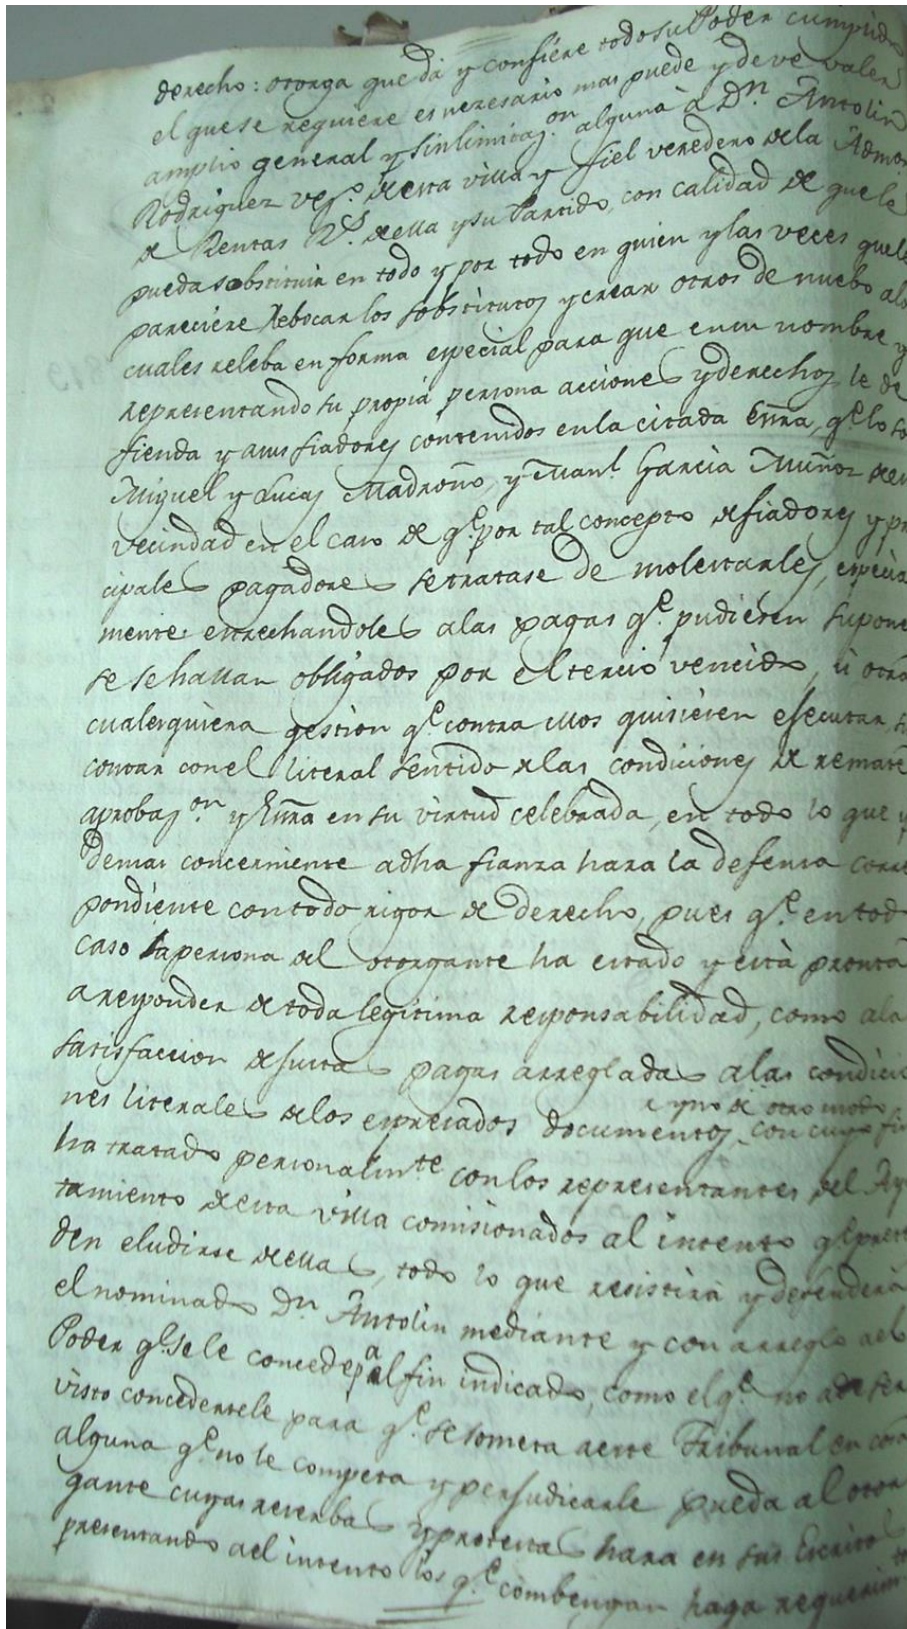 derecho: otorga que da y confiere todo su Poder cumplido
el que se requiere es nezesario mas puede y deve valer
amplio general y sin limitaz.on alguna à Dn. Antolin
Rodriguez vez.o de esta villa y fiel veredero de la Admon
de Rentas R.s de ella y su Partido, con calidad de que le
pueda sobstituir en todo y por todo en quien y las veces que le
pareciere Rebocar los sobstitutos y crear otros de nuebo a los
cuales releba en forma especial para que en su nombre y
representando su propia persona acciones y derechos le de
fienda y a sus fiadores contenidos en la citada Esñra, q.e lo so
Miguel y Lucas Madroño, y Man.l Garcia Muñoz de esta
vecindad en el caso de q.e por tal concepto de fiadores y prin
cipales pagadores se tratase de molestarles, especial
mente estrechandoles a las pagas q.e pudiesen supone
se se hallan obligados por el tercio vencido, ù otra
cualesquiera gestion q.e contra ellos quisiesen esecutar, s
contar con el literal sentido de las condiciones de remate
aprobaz.on y Esñra en su virtud celebrada, en todo lo que y
demas concerniente a dha fianza hara la defensa corres
pondiente con todo rigor de derecho, pues q.e en todo
caso la persona del otorgante ha estado y està pronta
a responder de toda legitima responsabilidad, como a la
satisfaccion de justas pagas arregladas a las condicio
nes literales de los espresados documentos y no de otro modo con cuyo fin
ha tratado personalm.te con los representantes del Ayun
tamiento de esta villa comisionados al intento q.e preten
den eludirse de ellas, todo lo que resistirà y defenderà
el nominado Dn. Antolin mediante y con arreglo a el
Poder q.e se le concede p.a el fin indicado, como el q.e no a de ser
visto concedersele para q.e se someta a este Tribunal en cosa
alguna q.e no le competa y perjudicarle pueda al otor
gante cuyas reserbas y protestas hara en sus Escritos
presentando a el intento los q.e combengan haga requerim.tos